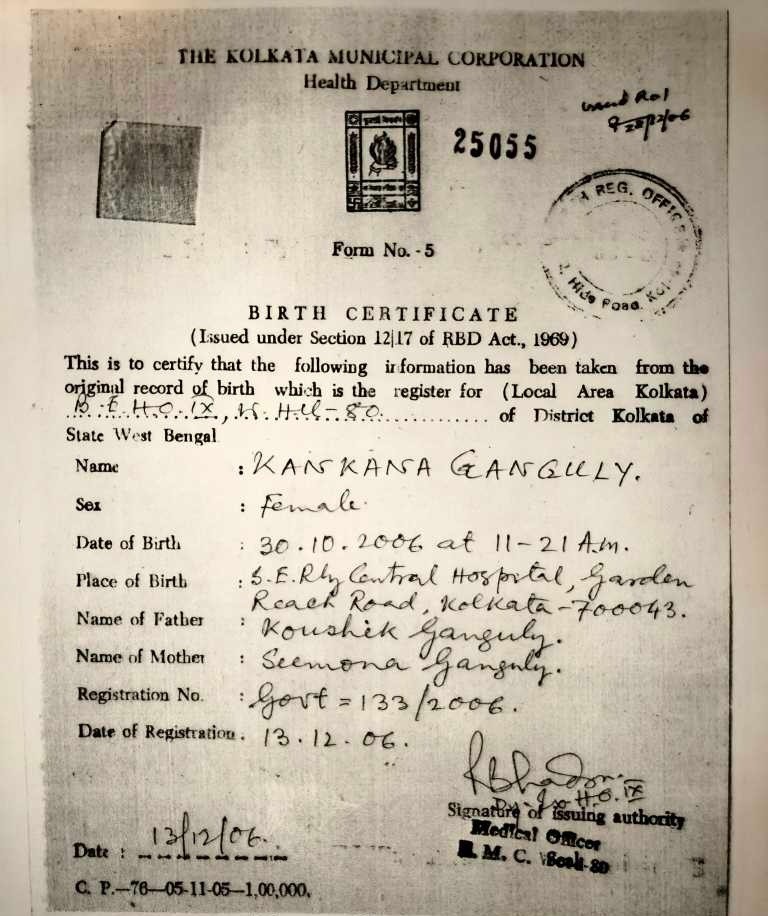 THE KOLKATA MUNICIPAL CORPORATION
Health Department
25055
28/12/06
REG. OFFICE
Hide Road, Kol
Form No. - 5
BIRTH CERTIFICATE
(Issued under Section 12|17 of RBD Act., 1969)
This is to certify that the following information has been taken from the
original record of birth which is the register for (Local Area Kolkata)
IX, 80 of District Kolkata of
State West Bengal
Name : KANKANA GANGULY.
Sex : Female.
Date of Birth : 30.10.2006 at 11-21 A.m.
Place of Birth : S.E.Rly Central Hospital, Garden
Reach Road, Kolkata-700043.
Name of Father : Koushik Ganguly.
Name of Mother : Seemona Ganguly.
Registration No. : Govt = 133/2006.
Date of Registration. 13.12.06.
H.O. IX
Signature of issuing authority
Medical Officer
M. C.
Date : 13/12/06.
C. P.—76—05-11-05—1,00,000.